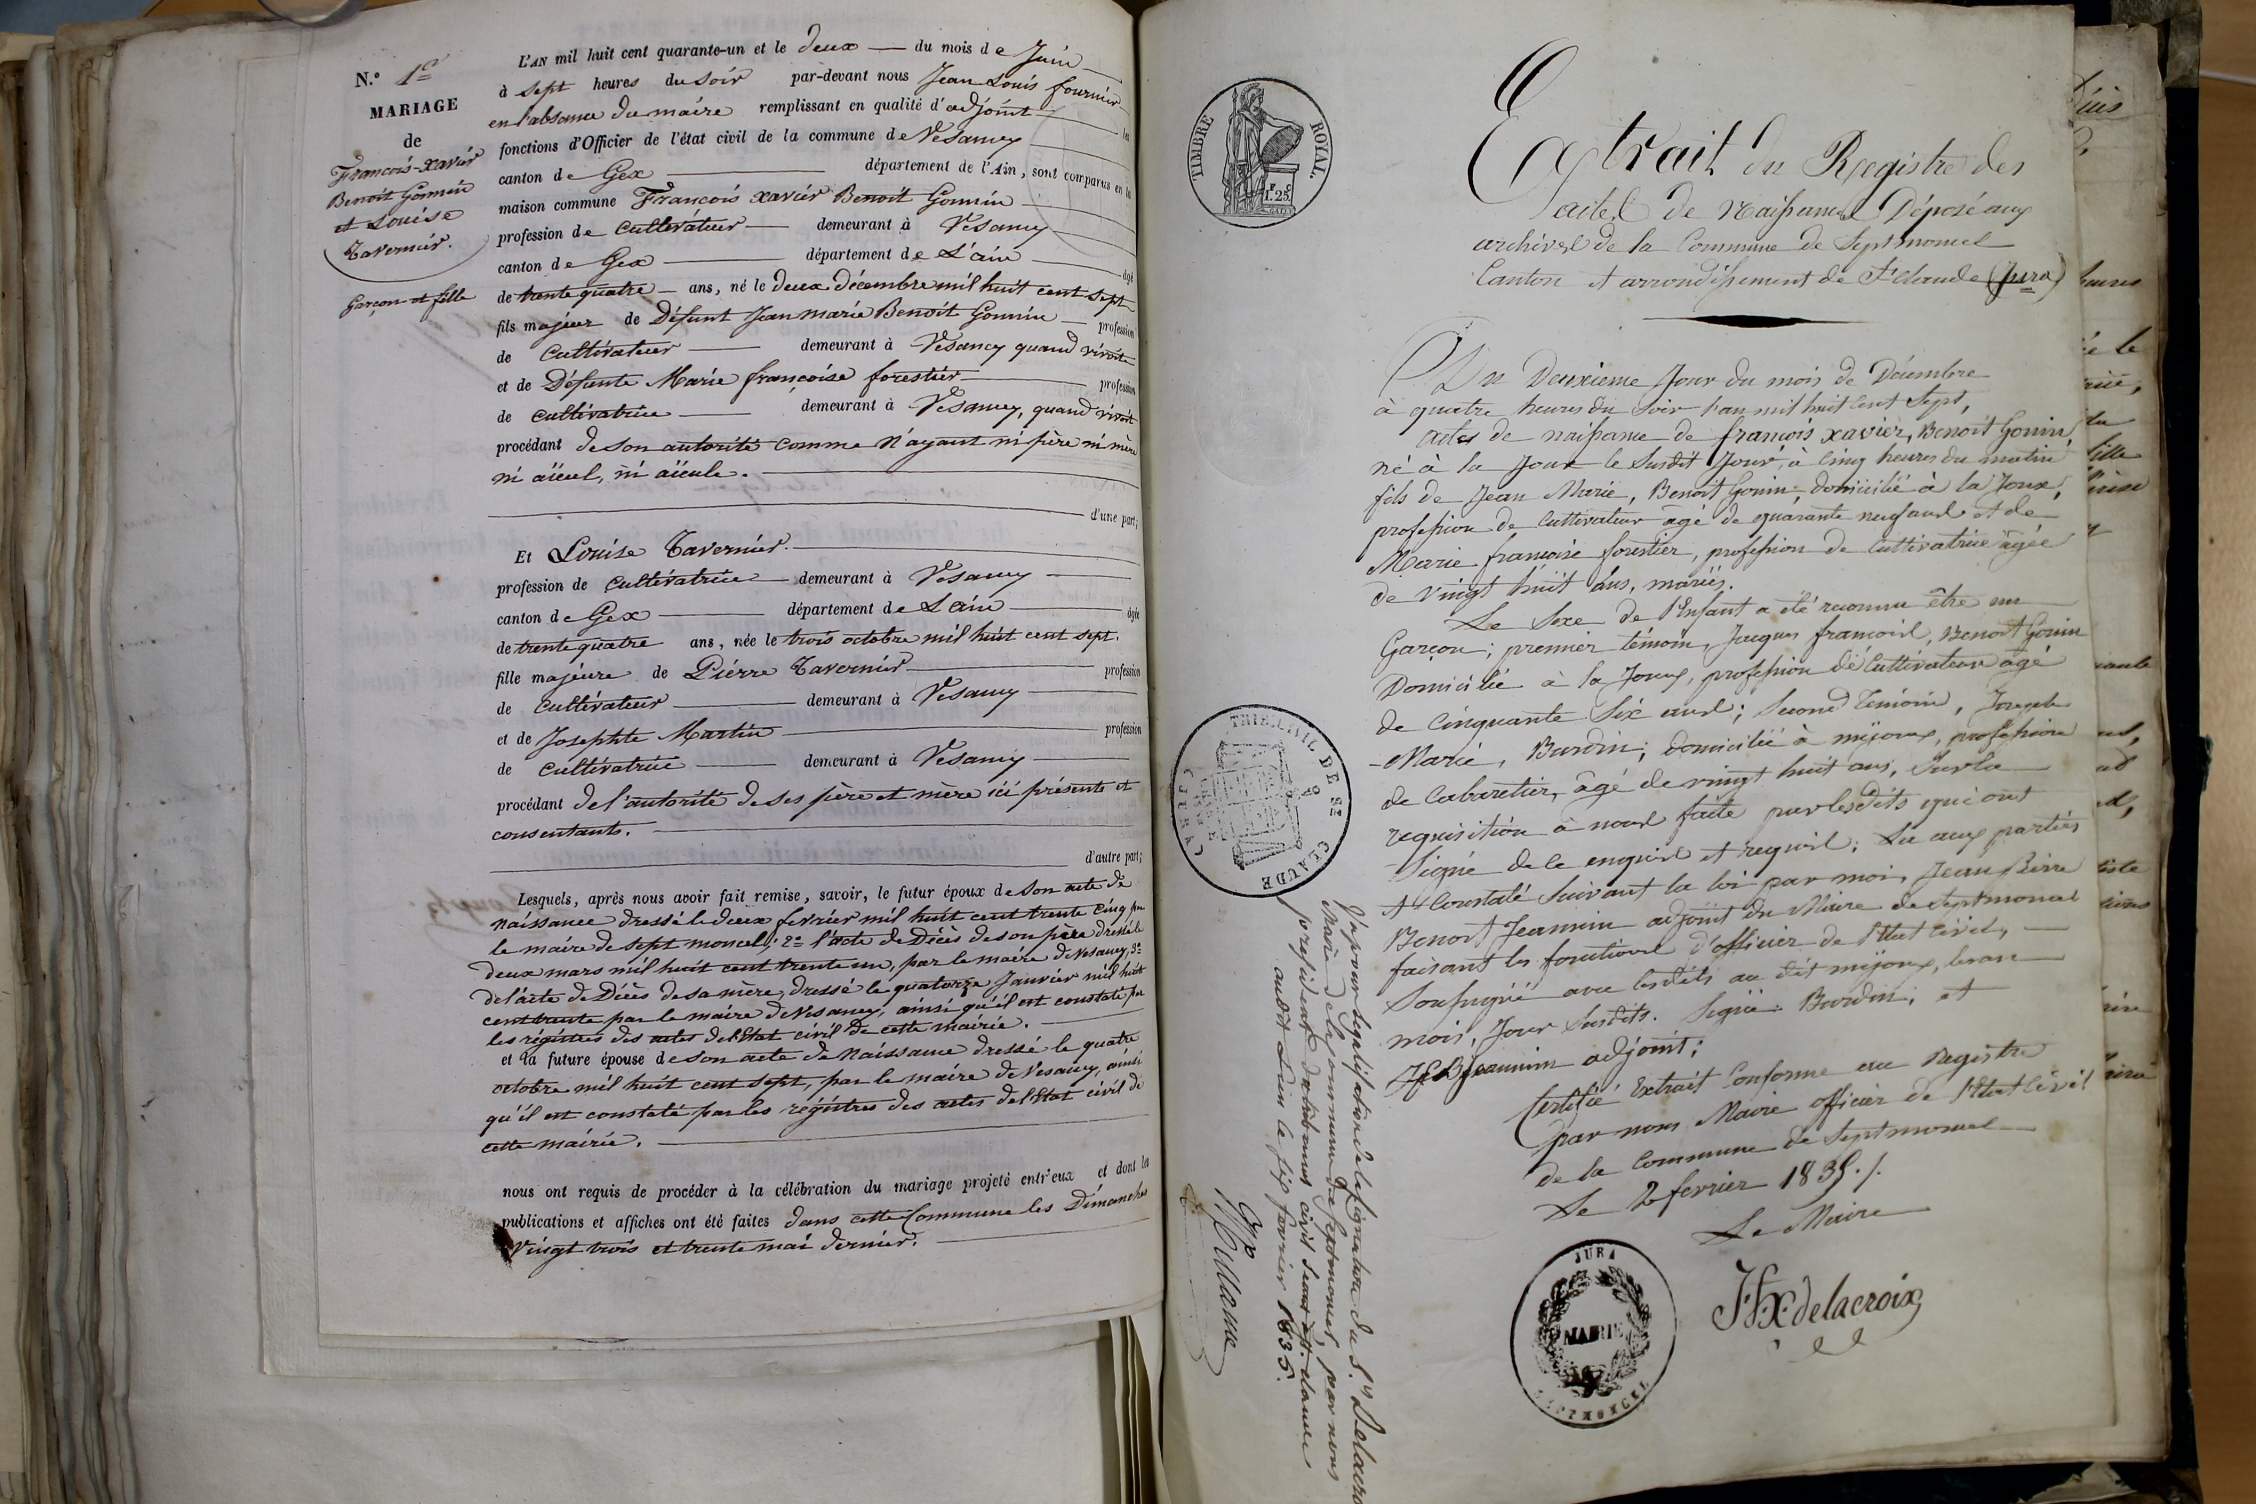 N.° 1er
MARIAGE
de
François-Xavier
Benoit Gonnin
et Louise
Tavernier.
Garçon et fille
L'AN mil huit cent quarante-un et le deux du mois de Juin
à sept heures du soir par-devant nous Jean Louis fournier
en l'absence du maire remplissant en qualité d'adjoint les
fonctions d'Officier de l'état civil de la commune de Vesancy
canton de Gex département de l'Ain, sont comparus en la
maison commune François xavier Benoit Gonnin
profession de cultivateur demeurant à Vesancy
canton de Gex département de L'ain âgé
de trente quatre ans, né le deux décembre mil huit cent sept
fils majeur de Défunt Jean marie Benoit Gonnin profession
de cultivateur demeurant à Vesancy quand vivoit
et de Défunte Marie françoise forestier profession
de cultivatrice demeurant à Vesancy, quand vivoit
procédant de son autorité comme n'ayant ni père ni mère
ni aïeul, ni aïeule.
d'une part;
Et Louise Tavernier.
profession de cultivatrice demeurant à Vesancy
canton de Gex département de L'ain âgée
de trente quatre ans, née le trois octobre mil huit cent sept.
fille majeure de Pierre Tavernier profession
de cultivateur demeurant à Vesancy
et de Josephte Martin profession
de cultivatrice demeurant à Vesancy
procédant de l'autorité de ses père et mère ici présents et
consentants.
d'autre part;
Lesquels, après nous avoir fait remise, savoir, le futur époux de son acte de
naissance dressé le deux fevrier mil huit cent trente cinq par
le maire de sept moncel; 2° l'acte de Décès de son père dressé le
deux mars mil huit cent trente un, par le maire de Vesancy, 3°
de l'acte de Décès de sa mère, dressé le quatorze Janvier mil huit
cent trente par le maire de Vesancy, ainsi qu'il est constaté par
les régistres des actes de l'Etat civil de cette mairie.
et la future épouse de son acte de Naissance dressé le quatre
octobre mil huit cent sept, par le maire de Vesancy, ainsi
qu'il est constaté par les régistres des actes de l'Etat civil de
cette mairie.
nous ont requis de procéder à la célébration du mariage projeté entr'eux et dont les
publications et affiches ont été faites dans cette Commune les Dimanches
vingt trois et trente mai dernier.
TIMBRE ROYAL.
1.F 25.C
Extrait du Registre des
actes de Naissances Déposé aux
archives de la Commune de Septmoncel
Canton et arrondissement de St Claude (Jura)
Du Deuxieme Jour du mois de Décembre
à quatre heures du Soir l'an mil huit Cent Sept,
actes de naissance de françois xavier, Benoit Gonin
né à la Joux le Susdit Jour, à Cinq heures du matin
fils de Jean Marie, Benoit Gonin, domicilié à la Joux,
profession de Cultivateur âgé de quarante neuf ans et de
Marie françoise forestier, profession de Cultivatrice âgée
de Vingt huit ans, mariés.
Le Sexe de l'Enfant a été reconnu être un
Garçon; premier témoin, Jacques francois, Benoit Gonin
Domicilié à la Joux, profession de Cultivateur âgé
de Cinquante Six ans; Second Témoin, Joseph
Marie, Burdin; domicilié à mijoux, profession
de Cabaretier, âgé de vingt huit ans, Sur la
requisition à nous faite par lesdits qui ont
Signé de ce enquis et requis; Lu aux parties
et Constaté Suivant la loi par moi, Jean Pierre
Benoit Jeannin adjoint du Maire de Septmoncel
faisant les fonctions d'officier de l'Etat Civil,
Soussigné avec lesdits au dit mijoux, les an
mois, Jour Susdits. Signé: Burdin; et
J.P.B. Jeannin adjoint;
Certifié Extrait Conforme au Registre
par nous Maire officier de l'Etat Civil
de la Commune de Septmoncel
Le 2 fevrier 1835./.
Le Maire
JFX delacroix
JURA
MAIRIE
SEPTMONCEL
TRIB. CIVIL DE ST CLAUDE
(JURA)
Vu pour légalisation de la signature du Sr Delacroix
Maire de la Commune de Septmoncel, par nous
président du tribunal civil séant à St. Claude
audit Lieu le six fevrier 1835.